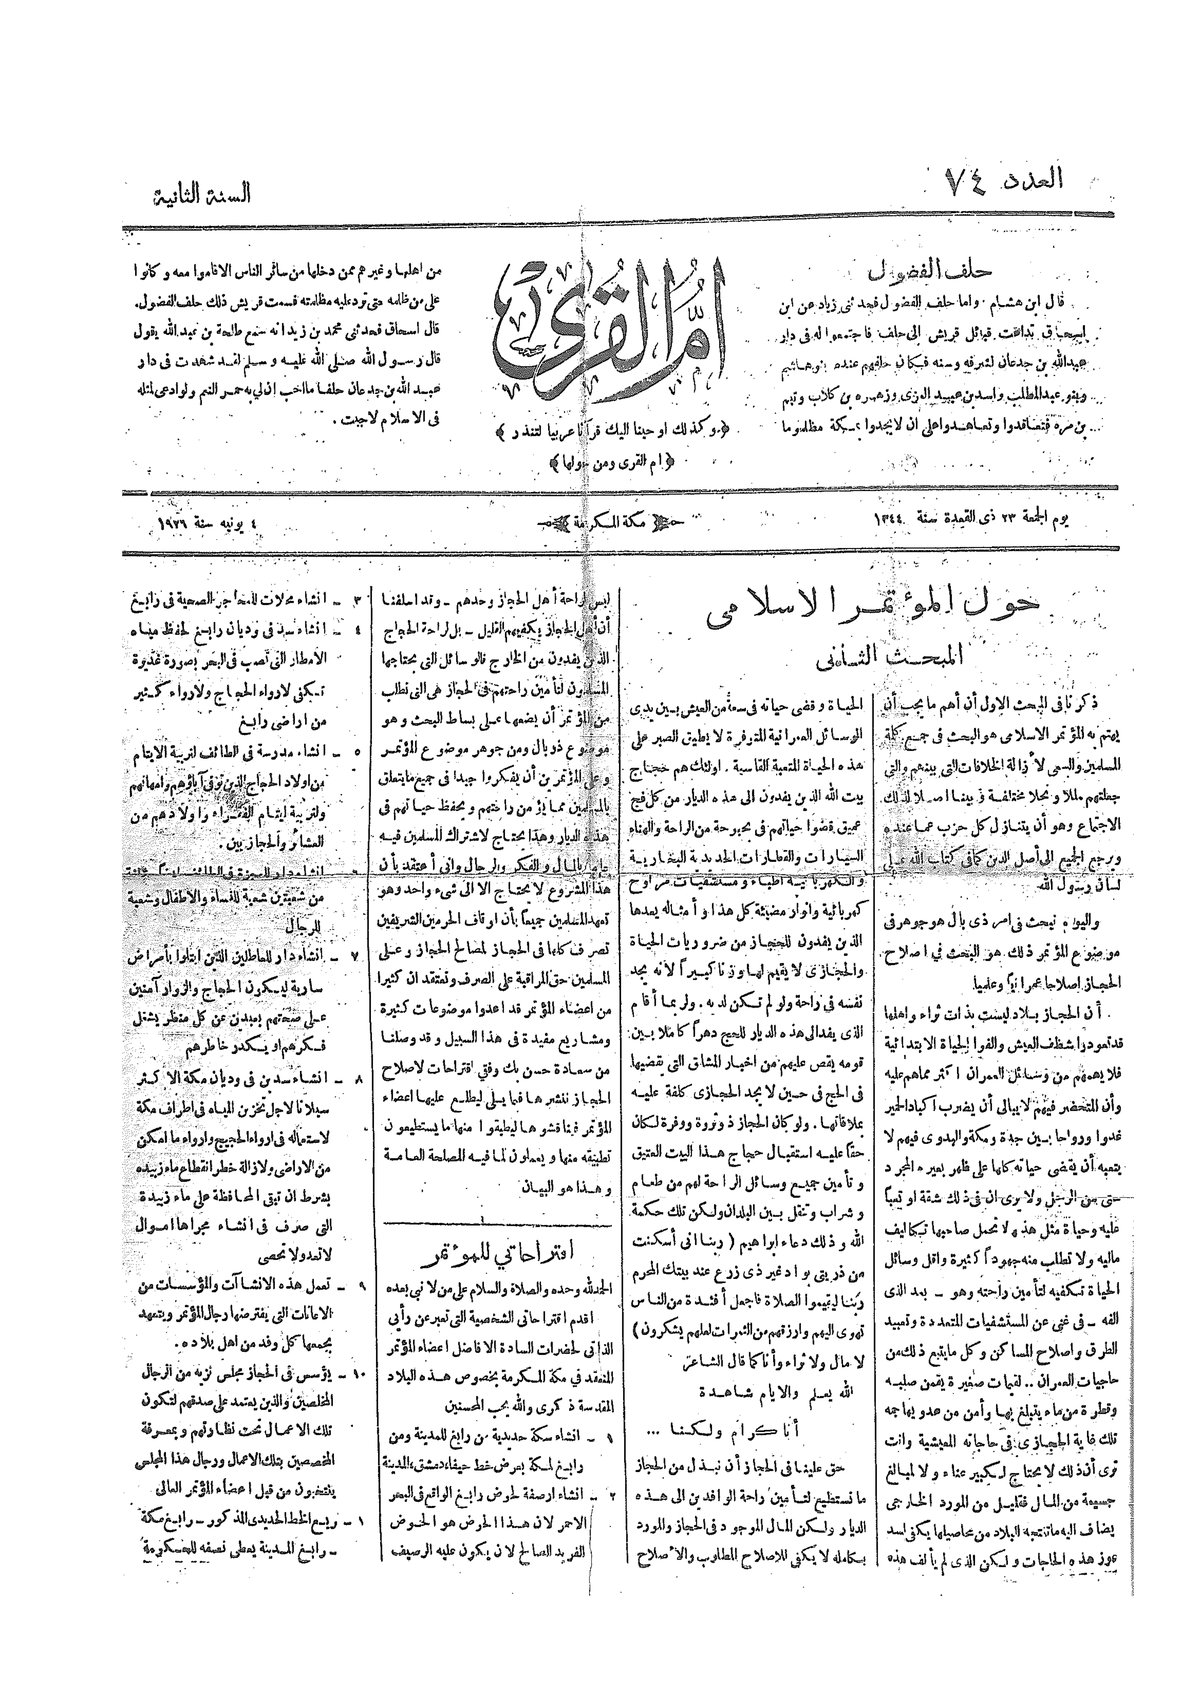 العدد ٧٤
السنة الثانية
حلف الفضول
قال ابن هشام . واما حلف الفضول فحدثني زياد عن ابن
إسحاق تداعت قبائل قريش إلى حلف فاجتمعوا له في دار
عبدالله بن جدعان لشرفه وسنه فكان حلفهم عنده بنو هاشم
وبنو عبدالمطلب واسد بن عبد العزى وزهره بن كلاب وتيم
بن مرة فتعاقدوا وتعاهدوا على ان لا يجدوا بمكة مظلوما
أم القرى
﴿ وكذلك اوحينا اليك قرآنا عربيا لتنذر ﴾
﴿ ام القرى ومن حولها ﴾
من اهلها وغيرهم ممن دخلها من سائر الناس الا قاموا معه وكانوا
على من ظلمه حتى ترد عليه مظلمته فسمت قريش ذلك حلف الفضول.
قال اسحاق فحدثني محمد بن زيد انه سمع طلحة بن عبد الله يقول
قال رسول الله صلى الله عليه وسلم لقد شهدت في دار
عبد الله بن جدعان حلفا ما احب ان لي به حمر النعم ولو ادعى لمثله
في الاسلام لاجبت .
يوم الجمعة ٢٣ ذى القعدة سنة ١٣٤٤
مكة المكرمة
٤ يونيه سنة ١٩٢٦
حول المؤتمر الاسلامى
المبحث الثانى
ذكرنا فى المبحث الاول أن أهم ما يجب أن
يهتم به المؤتمر الاسلامى هو البحث فى جميع كلة
المسلمين والسعى لأزالة الخلافات التى بينهم والتى
جعلتهم مللا ونحلا مختلفة وبينا اصلا لذلك
الاجتماع وهو أن يتنازل كل حزب عما عنده
ويرجع الجميع الى أصل الدين كما فى كتاب الله على
لسان رسول الله
واليوم نبحث فى امر ذى بال هو جوهر فى
موضوع المؤتمر ذلك هو البحث فى اصلاح
الحجاز إصلاحا عمرانيا وعلميا.
أن الحجاز بلاد ليست بذات ثراء واهلها
قد تعودوا شظف العيش والفوا الحياة الابتدائية
فلا يهمهم من وسائل العمران اكثر مما هم عليه
وأن المتحضر فيهم لا يبالى أن يضرب اكباد الحمير
غدوا ورواحا بين جدة ومكة والبدوى فيهم لا
يتعبه أن يقضى حياته كلها على ظهر بعيره المجرد
حتى من الرحل ولا يرى ان فى ذلك شقة او تعبا
عليه وحياة مثل هذه لا تحمل صاحبها تكاليف
ماليه ولا تطلب منه جهوداً كثيرة واقل وسائل
الحياة تكفيه لتأمين راحته وهو – بعد الذى
الفه – فى غنى عن المستشفيات المتعددة وتعبيد
الطرق واصلاح المساكن وكل ما يتبع ذلك من
حاجيات العمران .. لقيمات صغيرة يقمن صلبه
وقطرة من ماء يتبلغ بها وأمن من عدو يهاجمه
تلك غاية الحجازى فى حاجاته المعيشية وانت
ترى أن ذلك لا يحتاج لكبير عناء ولا لمبالغ
جسيمة من المال فقليل من المورد الخارجى
يضاف اليه ما تنتجه البلاد من محاصيلها يكفى لسد
عوز هذه الحاجات ولكن الذى لم يألف هذه
الحياة وقضى حياته فى سعة من العيش بين يدى
الوسائل العمرانية المتوفرة لا يطيق الصبر على
هذه الحياة المتعبة القاسية . اولئك هم حجاج
بيت الله الذين يفدون الى هذه الديار من كل فج
عميق قضوا حياتهم فى بحبوحة من الراحة والهناء
السيارات والقطارات الحديدية البخارية
والكهربائية اطباء ومستشفيات مراوح
كهربائية وانوار مضيئة كل هذا وأمثاله يعدها
الذين يفدون للحجاز من ضروريات الحياة
والحجازى لا يقيم لها وزنا كبيراً لأنه يجد
نفسه فى راحة ولو لم تكن لديه . ولربما أقام
الذى يفد الى هذه الديار للحج دهراً كاملا بين
قومه يقص عليهم من اخبار المشاق التى يقضيها
فى الحج فى حين لا يجد الحجازى كلفة عليه
بملاقاتها . ولو كان الحجاز ذو ثروة ووفرة لكان
حقاً عليه استقبال حجاج هذا البيت العتيق
وتأمين جميع وسائل الراحة لهم من طعام
وشراب وتنقل بين البلدان ولكن تلك حكمة
الله وذلك دعاء ابراهيم ( ربنا انى أسكنت
من ذريتى بواد غير ذى زرع عند بيتك المحرم
ربنا ليقيموا الصلاة فاجعل أفئدة من الناس
تهوى اليهم وارزقهم من الثمرات لعلهم يشكرون )
لا مال ولا ثراء وأنا كما قال الشاعر
الله يعلم والايام شاهدة
أنا كرام ولكنا ...
حق علينا فى الحجاز أن نبذل من الحجاز
ما نستطيع لتأمين راحة الوافدين الى هذه
الديار ولكن المال الموجود فى الحجاز والمورد
بكامله لا يكفى للاصلاح المطلوب والأصلاح
ليس لراحة أهل الحجاز وحدهم – وقد اسلفنا
أن أهل الحجاز يكفيهم القليل – بل لراحة الحجاج
الذين يفدون من الخارج فالوسائل التى يحتاجها
المسلمون لتأمين راحتهم فى الحجاز هى التى نطلب
من المؤتمر أن يضعها على بساط البحث وهو
موضوع ذو بال ومن جوهر موضوع المؤتمر
وعلى المؤتمرين أن يفكروا جيدا فى جميع ما يتعلق
بالمسلمين مما يؤمن راحتهم ويحفظ حياتهم فى
هذه الديار وهذا يحتاج لاشتراك المسلمين فيه
جميعا بالمال والفكر والرجال وانى أعتقد بأن
هذا المشروع لا يحتاج الا الى شىء واحد وهو
تعهد المسلمين جميعاً بأن اوقاف الحرمين الشريفين
تصرف كلها فى الحجاز لمصالح الحجاز وعلى
المسلمين حق المراقبة على الصرف ونعتقد ان كثيرا
من اعضاء المؤتمر قد اعدوا موضوعات كثيرة
ومشاريع مفيدة فى هذا السبيل وقد وصلنا
من سعادة حسن بك وفقى اقتراحات لاصلاح
الحجاز ننشرها فيما يلى ليطلع عليها اعضاء
المؤتمر فيناقشوها ليطبقوا منها ما يستطيعون
تطبيقه منها ويعملون لما فيه المصلحة العامة
وهذا هو البيان
اقتراحاتي للمؤتمر
الحمدلله وحده والصلاة والسلام على من لا نبي بعده
اقدم اقتراحاتى الشخصية التى تعبر عن رأيى
الذاتى لحضرات السادة الافاضل اعضاء المؤتمر
المنعقد في مكة المكرمة بخصوص هذه البلاد
المقدسة ذكرى والله يحب المحسنين
١ – انشاء سكة حديدية من رابغ للمدينة ومن
رابغ لمكة بعرض خط حيفاء، دمشق، المدينة
٢ – انشاء ارصفة لحوض رابغ الواقع فى البحر
الاحمر لان هذا الحوض هو الحوض
الفريد الصالح لان يكون عليه الرصيف
٣ – انشاء محلات للمحاجر الصحية فى رابغ
٤ – انشاء سد فى وديان رابغ لحفظ مياه
الأمطار التى تصب فى البحر بصورة غذيرة
تكفى لارواء الحجاج ولارواء كثير
من اراضى رابغ
٥ – انشاء مدرسة فى الطائف لتربية الايتام
من اولاد الحجاج الذين توفى آباؤهم وامهاتهم
ولتربية ايتام الفقراء واولادهم من
العشائر والحجازيين.
من شعبتين شعبة للنساء والاطفال وشعبة
للرجال
٧ – انشاء دار للعاطلين الذين ابتلوا بأمراض
سارية ليكون الحجاج والزوار آمنين
على صحتهم بعيدين عن كل منظر يشغل
فكرهم او يكدر خاطرهم
٨ – انشاء سدين فى وديان مكة الاكثر
سيلانا لاجل تخزين المياه فى اطراف مكة
لاستعماله فى ارواء الحجيج وارواء ما امكن
من الاراضى ولازالة خطر انقطاع ماء زبيده
بشرط ان تبقى المحافظة على ماء زبيدة
التى صرف فى انشاء مجراها اموال
لا تعد ولا تحصى
٩ – تعمل هذه الانشاآت والمؤسسات من
الاعانات التى يفترضها رجال المؤتمر ويتعهد
بجمعها كل وفد من اهل بلاده .
١٠ – يؤسس فى الحجاز مجلس نزيه من الرجال
المخلصين والذين يعتمد على صدقهم لتكون
تلك الاعمال تحت نظارتهم وبمعرفة
المخصصين بتلك الاعمال ورجال هذا المجلس
ينتخبون من قبل اعضاء المؤتمر العالى
١ – ريع الخط الحديدى المذكور – رابغ مكة
– رابغ المدينة يعطى نصفه للحكومة